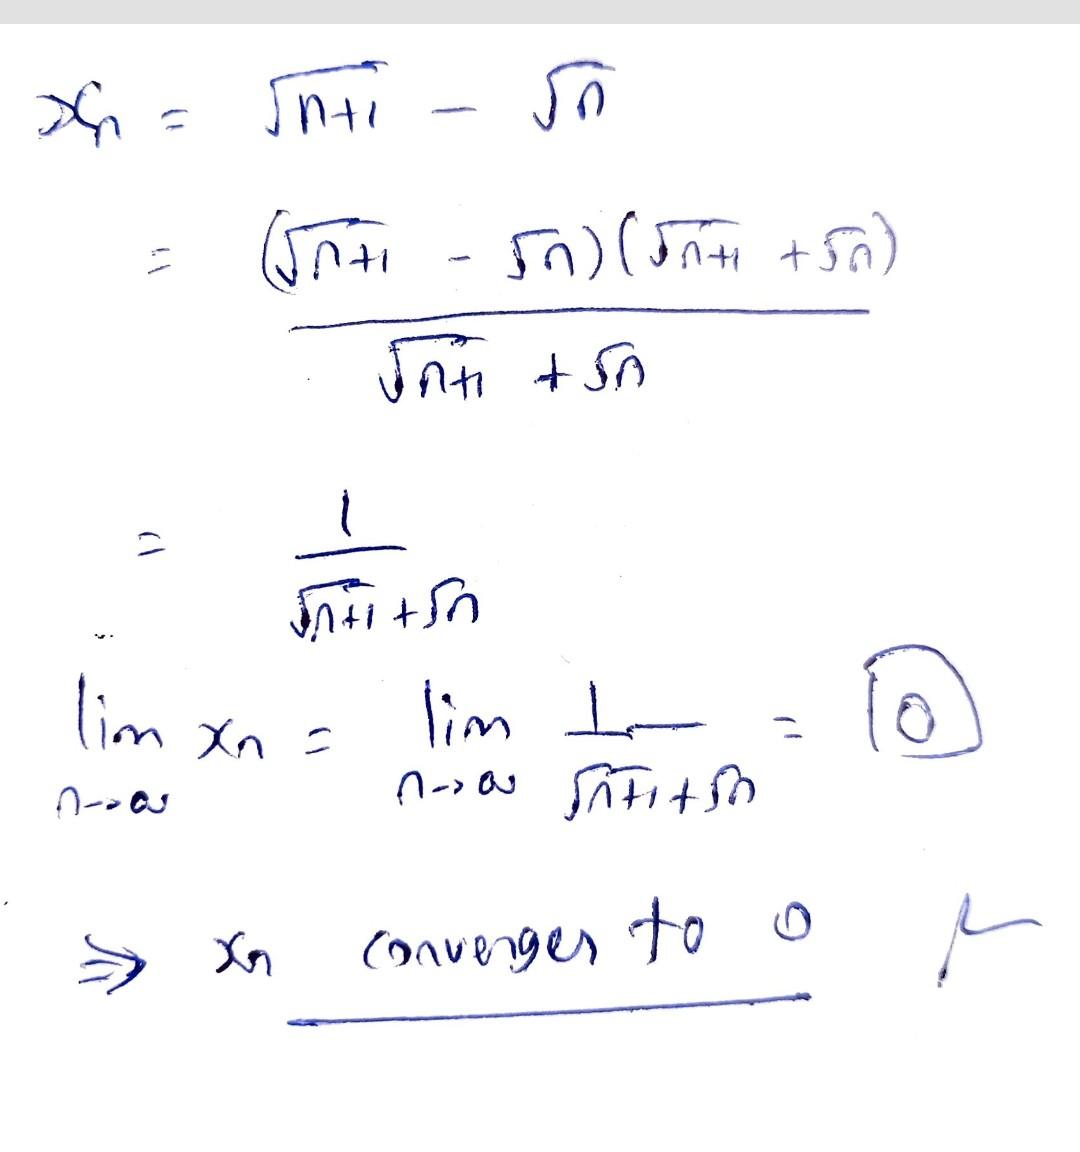 xn = √n+1 - √n
= (√n+1 - √n)(√n+1 + √n)
√n+1 + √n
= 1
√n+1 + √n
lim xn = lim 1 = 0
n->∞ n->∞ √n+1 + √n
=> xn converges to 0